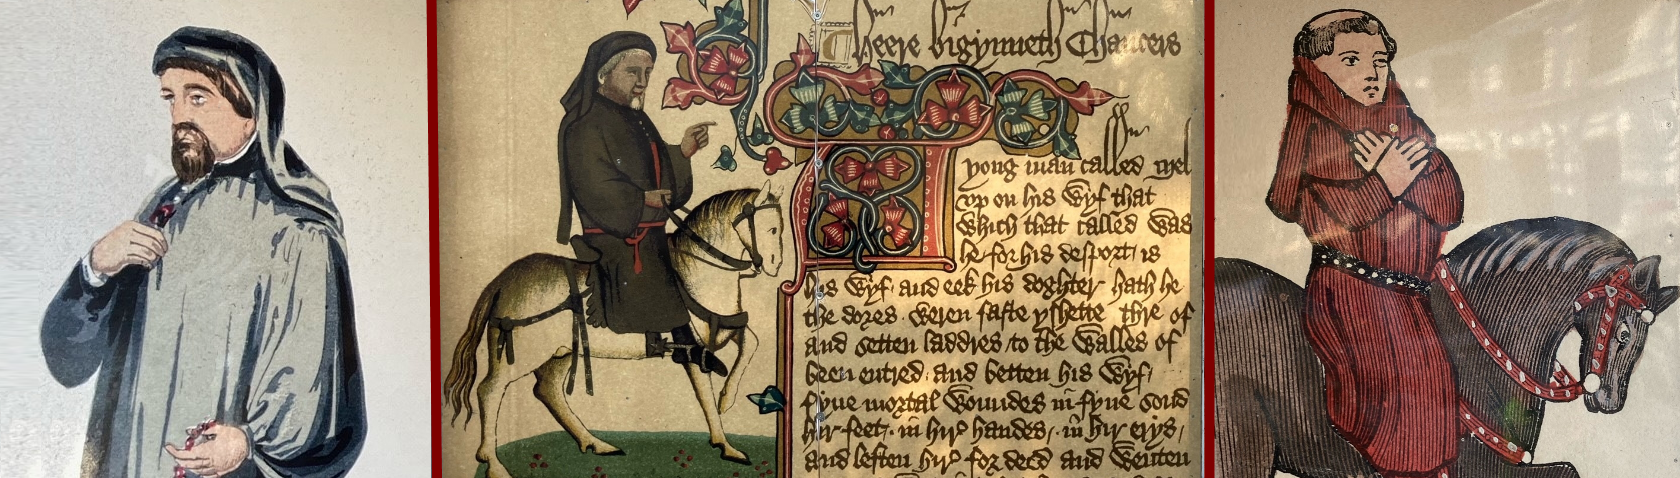 heere bigynneth Chaucers
yong man called Mel
vp on his Wyf that
Which that called Was
he for his desport is
his Wyf and eek his doghter hath he
the dores weren faste yshette thre of
and setten laddres to the Walles of
been entred and betten his Wyf
fyue mortal Woundes in fyue sond
hir feet in hir handes in hir erys
and leften hir for deed and Wenten